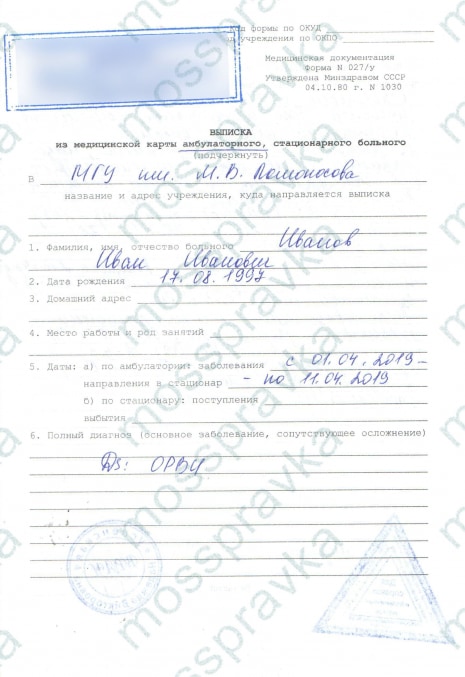 Код формы по ОКУД
учреждения по ОКПО
Медицинская документация
Форма N 027/у
Утверждена Минздравом СССР
04.10.80 г. N 1030
ВЫПИСКА
из медицинской карты амбулаторного, стационарного больного
(подчеркнуть)
В МГУ им. М.В. Ломоносова
название и адрес учреждения, куда направляется выписка
1. Фамилия, имя, отчество больного Иванов
Иван Иванович
2. Дата рождения 17.08.1997
3. Домашний адрес
4. Место работы и род занятий
5. Даты: а) по амбулатории: заболевания с 01.04.2019 –
направления в стационар – по 11.04.2019
б) по стационару: поступления
выбытия
6. Полный диагноз (основное заболевание, сопутствующее осложнение)
Ds: ОРВИ
mosspravka